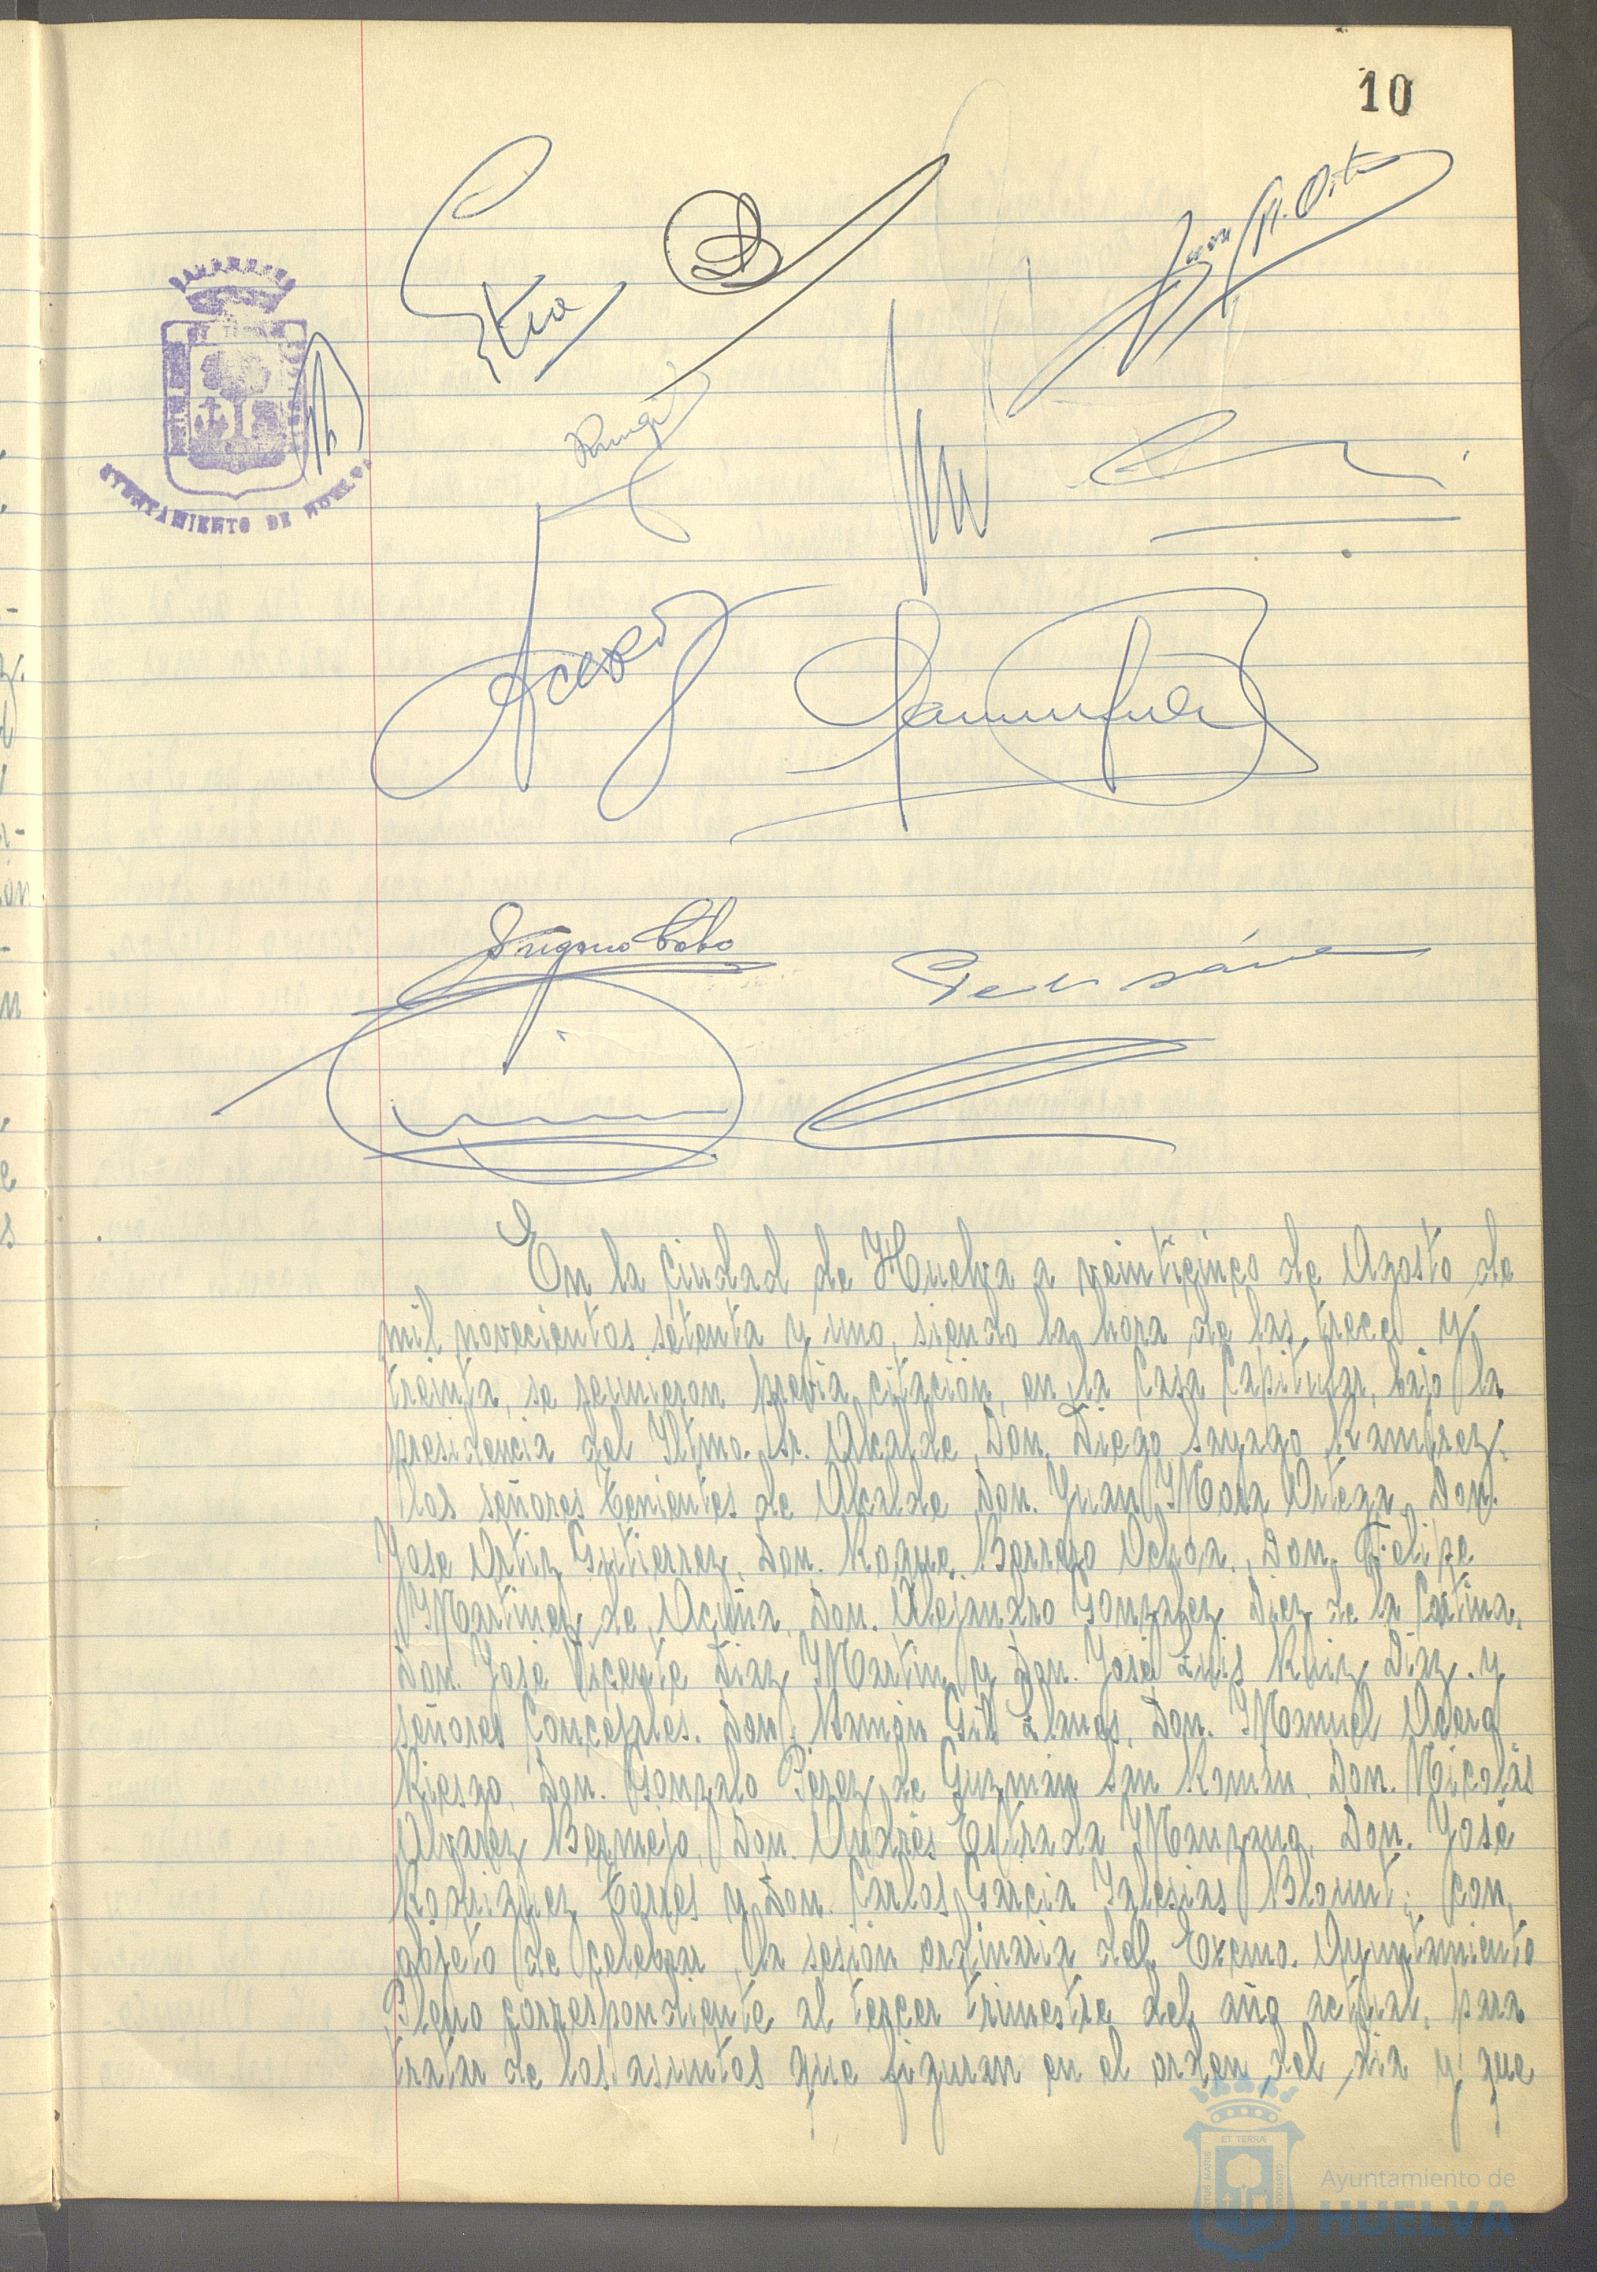 10
AYUNTAMIENTO DE HUELVA
Acevedo
En la Ciudad de Huelva a veinticinco de Agosto de
mil novecientos setenta y uno, siendo la hora de las trece y
treinta, se reunieron previa citación, en la Casa Capitular, bajo la
presidencia del Iltmo. Sr. Alcalde, Don. Diego Sayago Ramirez,
los señores Tenientes de Alcalde Don. Juan Mora Ortega, Don.
Jose Ortiz Gutierrez, Don. Roque Barrero Ochoa, Don. Felipe
Martinez de Acuña, Don. Alejandro Gonzalez Diez de la Cortina,
Don. José Vicente Diaz Martin y Don. José Luis Ruiz Diaz y
señores Concejales. Don. Ramón Gil Llanos, Don. Manuel
Riesgo, Don. Gonzalo Perez de Guzmán San Román, Don. Nicolás
Alvarez Bermejo, Don. Andrés Estrada Manzano, Don. José
Rodriguez Torres y Don. Carlos Garcia Iglesias Blount; con
objeto de celebrar la sesión ordinaria del Excmo. Ayuntamiento
Pleno correspondiente al tercer trimestre del año actual, para
tratar de los asuntos que figuran en el orden del dia y que
Ayuntamiento de
HUELVA